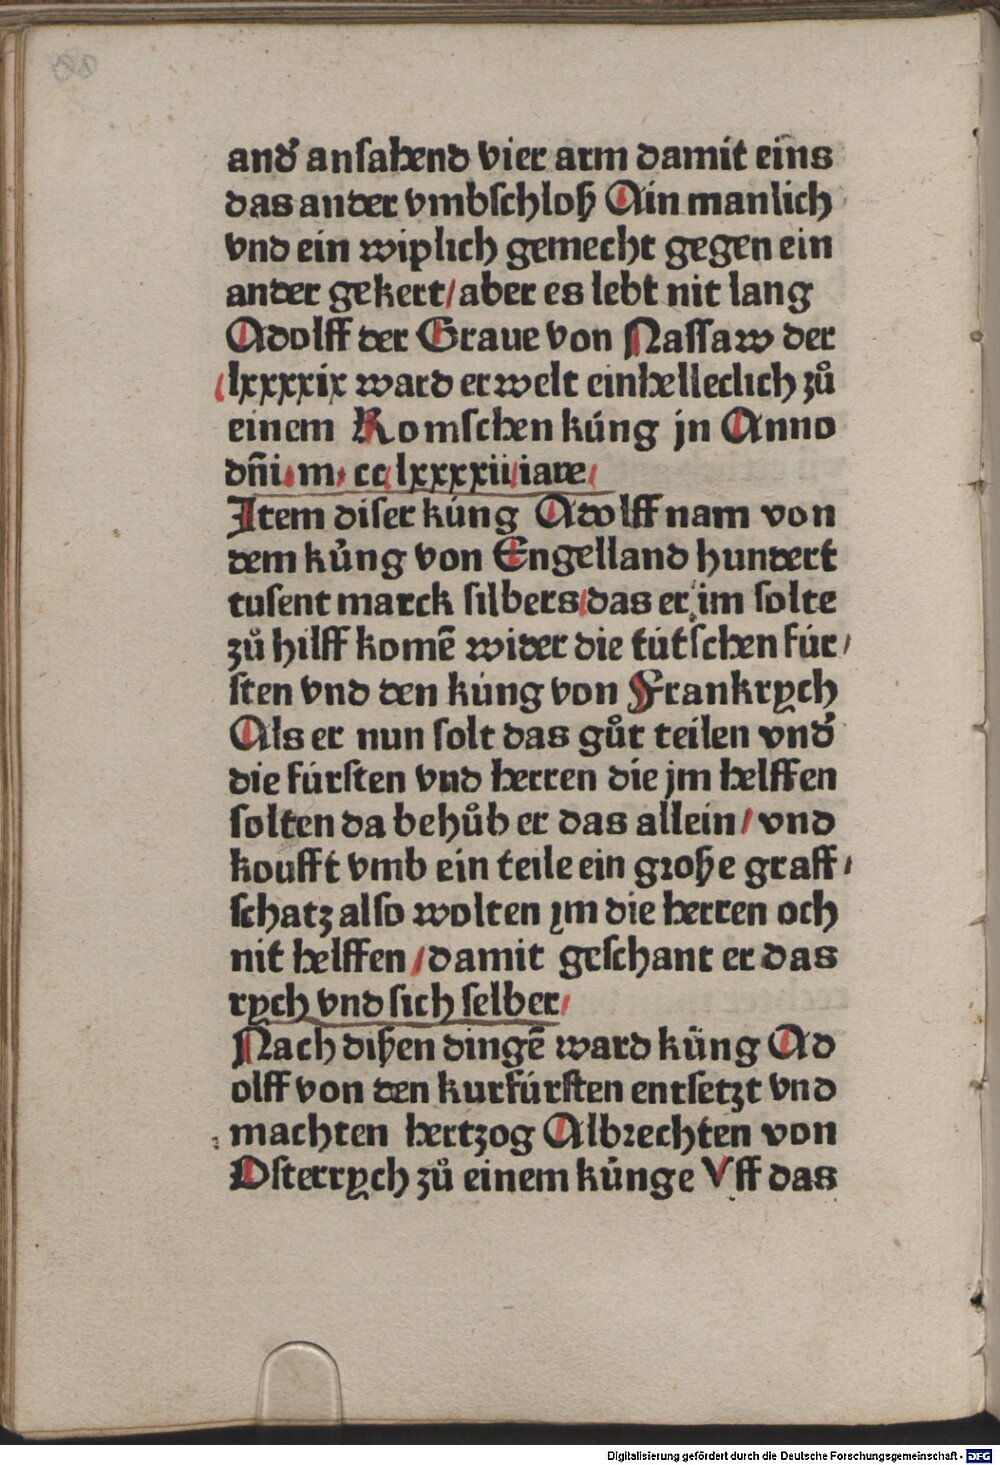 and' anſahend vier arm damit eins
das ander vmbſchloß Ain manlich
vnd ein wiplich gemecht gegen ein
ander gekert/ aber es lebt nit lang
Adolff der Graue von Naſſaw der
lxxxxix ward erwelt einhelleclich zů
einem Romſchen kúng jn Anno
dñi. m. cc lxxxxii iare
Item diſer kúng Adolff nam von
dem kúng von Engelland hundert
tuſent marck ſilbers/ das er im ſolte
zů hilff komē wider die tútſchen fúr/
ſten vnd den kúng von Frankrych
Als er nun ſolt das gůt teilen vnd'
die fúrſten vnd herren die jm helffen
ſolten da behůb er das allein/ vnd
koufft vmb ein teile ein große graff/
ſchatz alſo wolten ym die herren och
nit helffen/ damit geſchant er das
rych vnd ſich ſelber/
Nach dißen dingē ward kúng Ad
olff von den kurfúrſten entſetzt vnd
machten hertzog Albrechten von
Oſterrych zů einem kúnge Vff das
Digitalisierung gefördert durch die Deutsche Forschungsgemeinschaft - DFG